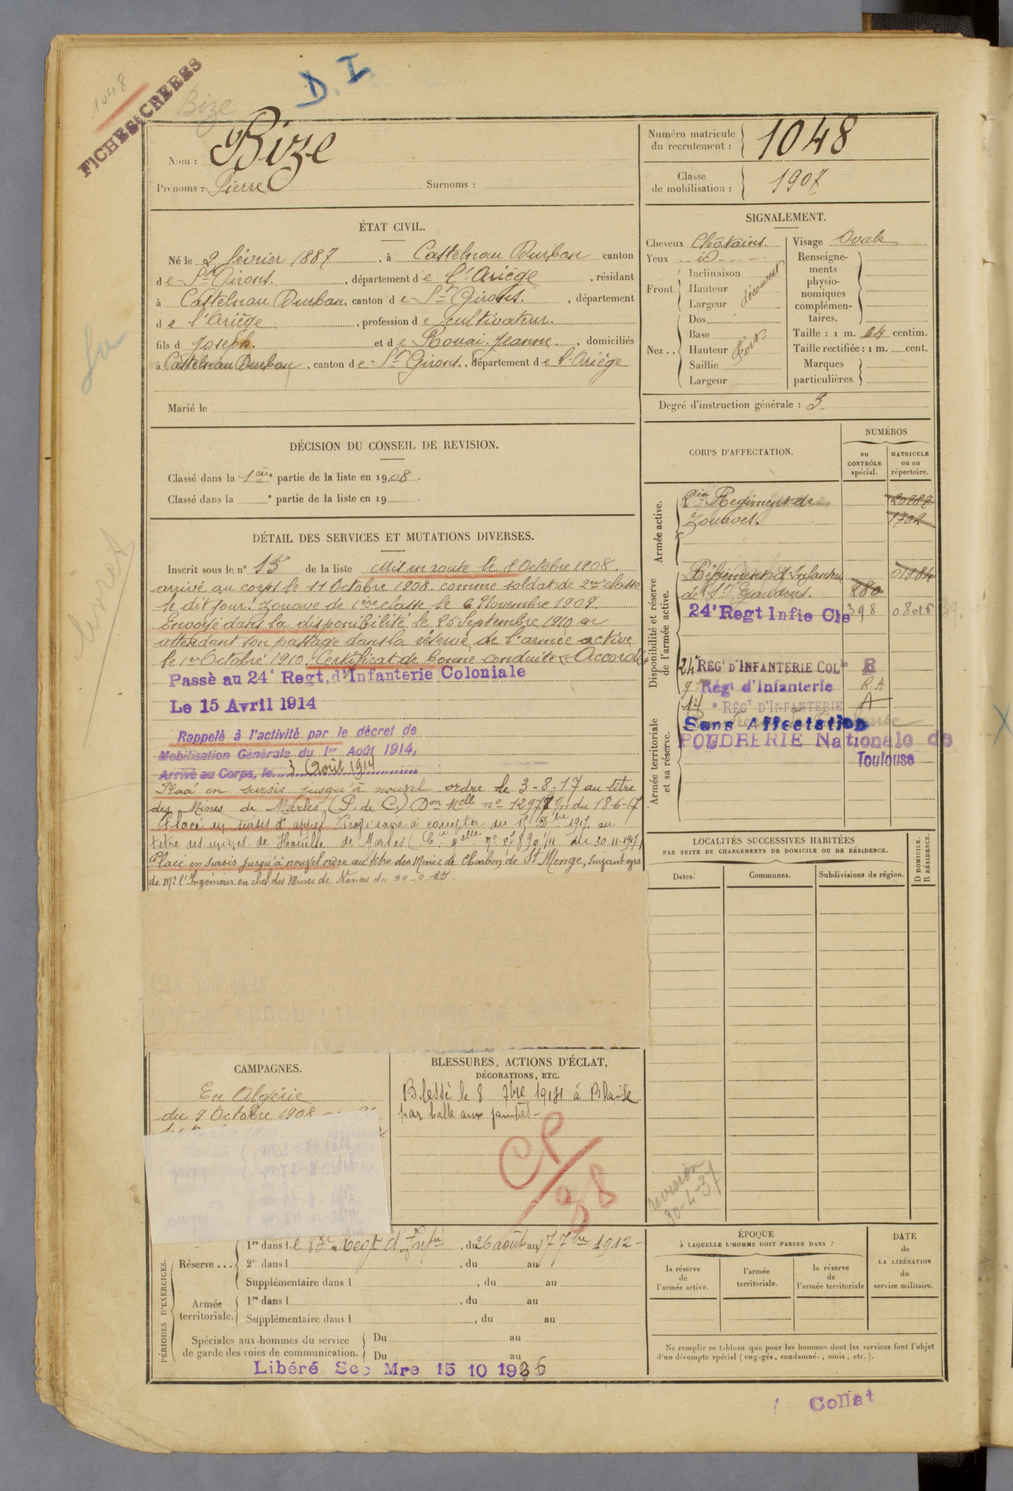 1048
FICHES CREEES
Bize
D. I
Nom : Bize
Prénoms : Pierre Surnoms :
Numéro matricule du recrutement : 1048
Classe de mobilisation : 1907
ÉTAT CIVIL.
Né le 9 février 1887, à Castelnau Durban canton
de St Girons, département de l'Ariège, résidant
à Castelnau Durban, canton de St Girons, département
de l'Ariège, profession de cultivateur
fils de Joseph et de Rouai Jeanne, domiciliés
à Castelnau Durban, canton de St Girons, département de l'Ariège
Marié le
SIGNALEMENT.
Cheveux Châtains Visage Ovale
Yeux id
Front. Inclinaison
Hauteur
Largeur
Nez.. Dos
Base
Hauteur
Saillie
Largeur
Renseignements physionomiques complémentaires.
Taille : 1 m. 64 centim.
Taille rectifiée : 1 m. cent.
Marques particulières.
Degré d'instruction générale : 3
DÉCISION DU CONSEIL DE REVISION.
Classé dans la 1ère partie de la liste en 1908.
Classé dans la e partie de la liste en 19
CORPS D'AFFECTATION.
NUMÉROS
au CONTRÔLE spécial.
MATRICULE ou au répertoire.
Armée active.
2e Régiment de
Zouaves.
1702
Disponibilité et réserve de l'armée active.
Régiment d'Infanterie
de St Gaudens.
280
24e Regt Infie Cle 398
24e REGt D'INFANTERIE COLle R
9e Régt d'Infanterie R A
14e REGt D'INFANTERIE A
Sans Affectation
POUDRERIE Nationale de
Toulouse
Armée territoriale et sa réserve.
DÉTAIL DES SERVICES ET MUTATIONS DIVERSES.
Inscrit sous le n° 15 de la liste Mis en route le 8 Octobre 1908.
arrivé au corps le 11 Octobre 1908 comme soldat de 2me classe
le dit jour. Zouave de 1ère classe le 6 Novembre 1909.
Envoyé dans la disponibilité le 25 Septembre 1910 en
attendant son passage dans la réserve de l'armée active
le 1er Octobre 1910. Certificat de bonne conduite Accordé
Passé au 24e Regt. d'Infanterie Coloniale
Le 15 Avril 1914
Rappelé à l'activité par le décret de
Mobilisation Générale du 1er Août 1914.
Arrivé au Corps, le 3 Août 1914
Placé en sursis jusqu'à nouvel ordre le 3-8-17 au titre
des Mines de Marles (P. de C.) Don Melle n° 12977 du 18-6-17
Placé en sursis d'appel
titre des mines de Houille de Marles du 30.11.1917
Placé en sursis jusqu'à nouvel ordre au titre des Mines de Charbon de St Menge, suivant avis
de Mr l'Ingénieur en chef des Mines de Nancy du
LOCALITÉS SUCCESSIVES HABITÉES
PAR SUITE DE CHANGEMENTS DE DOMICILE OU DE RÉSIDENCE.
Dates. Communes. Subdivisions de région. D DOMICILE. R RÉSIDENCE.
CAMPAGNES.
En Algérie
du 9 Octobre 1908
BLESSURES, ACTIONS D'ÉCLAT,
DÉCORATIONS, ETC.
Blessé le 8 7bre 1914 à Blaise
par balle aux jambes
CP/
révision
30-4-37
PÉRIODES D'EXERCICES.
Réserve ... 1re dans le Regt d'Infie, du 26 août au 7 7bre 1912
2e dans l , du au
Supplémentaire dans l , du au
Armée territoriale. 1re dans l , du au
Supplémentaire dans l , du au
Spéciales aux hommes du service de garde des voies de communication. Du au
Du au
Libéré Sce Mre 15 10 1936
ÉPOQUE
À LAQUELLE L'HOMME DOIT PASSER DANS :
la réserve de l'armée active.
l'armée territoriale.
la réserve de l'armée territoriale
DATE de LA LIBÉRATION du service militaire.
Ne remplir ce tableau que pour les hommes dont les services font l'objet
d'un décompte spécial (engagés, condamnés, omis, etc.).
Collat